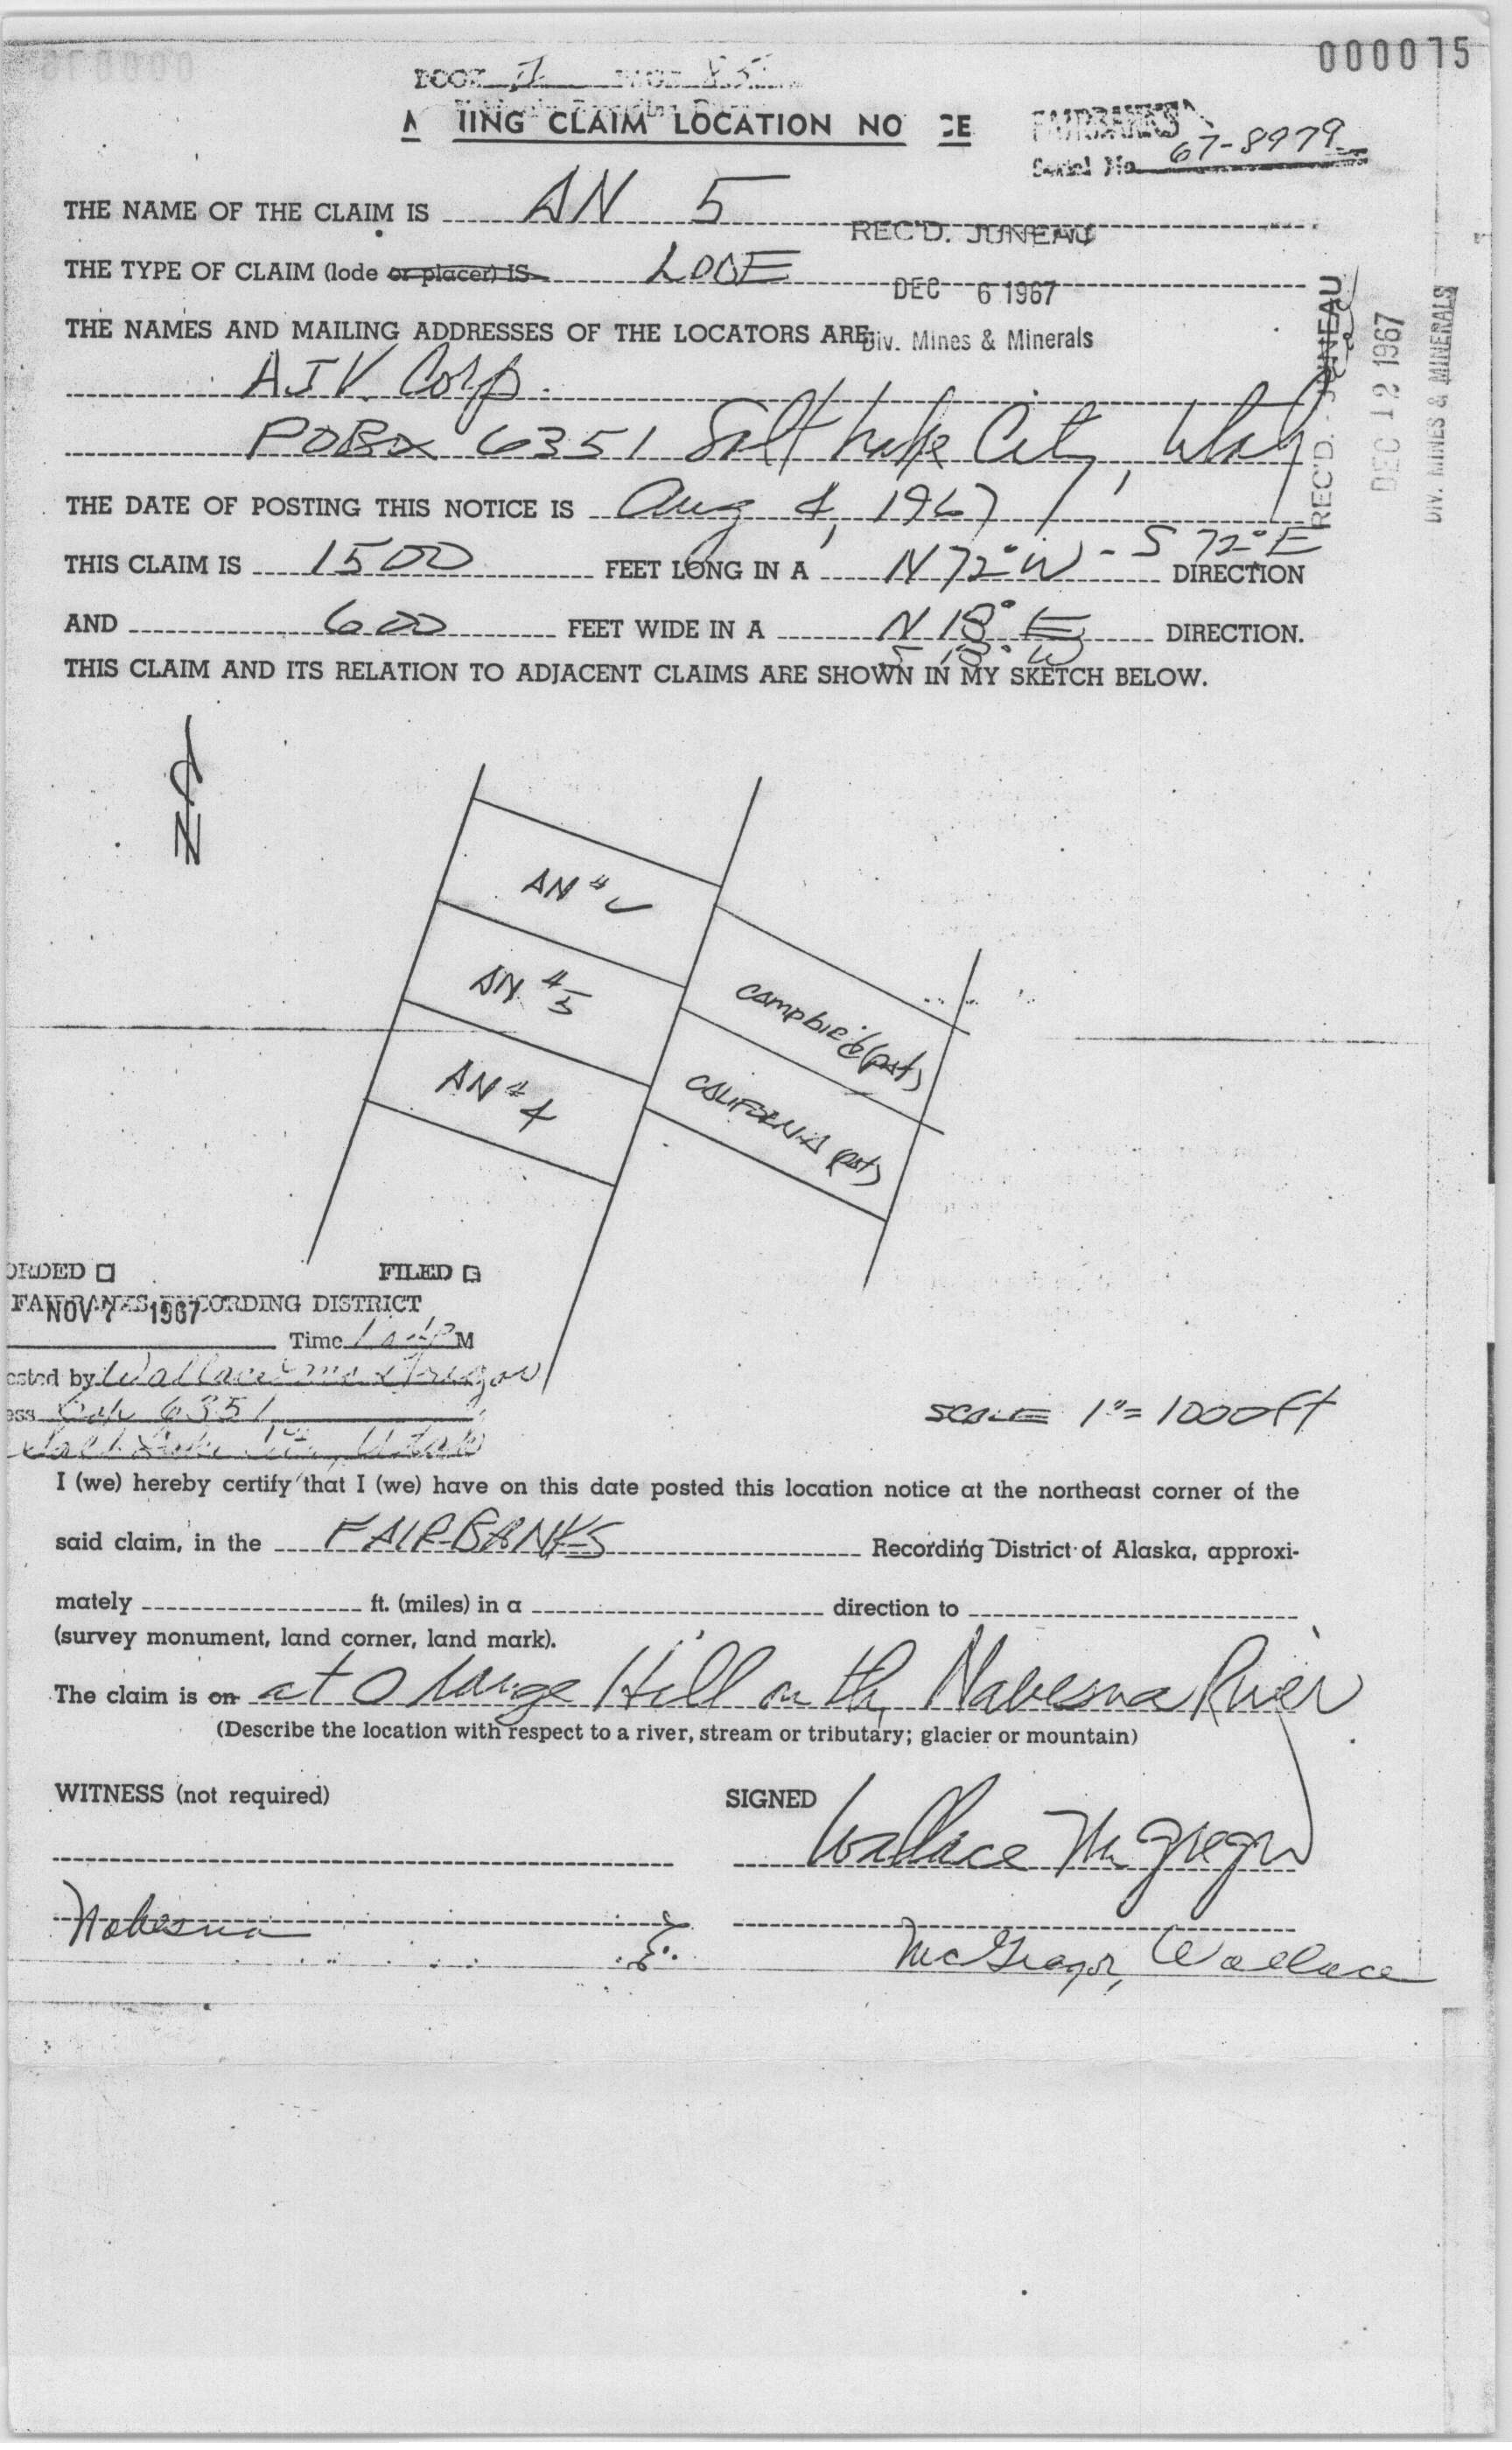 000075
MINING CLAIM LOCATION NO CE
FAIRBANKS
Serial No. 67-8979
THE NAME OF THE CLAIM IS AN 5
REC'D. JUNEAU
THE TYPE OF CLAIM (lode or placer) IS LODE
DEC 6 1967
THE NAMES AND MAILING ADDRESSES OF THE LOCATORS ARE
Div. Mines & Minerals
A J V. Corp.
PO Box 6351 Salt Lake City, Utah
REC'D. JUNEAU
DEC 12 1967
DIV. MINES & MINERALS
THE DATE OF POSTING THIS NOTICE IS Aug 4, 1967
THIS CLAIM IS 1500 FEET LONG IN A N 72° W - S 72° E DIRECTION
AND 600 FEET WIDE IN A N 18° E DIRECTION.
S 18° W
THIS CLAIM AND ITS RELATION TO ADJACENT CLAIMS ARE SHOWN IN MY SKETCH BELOW.
N
AN #
AN #5
CAMPBIE (pat)
AN #4
CALIFORNIA (pat)
ORDED FILED
FAIRBANKS RECORDING DISTRICT
NOV 7 1967
Time M
ested by Wallace McGregor
ess Box 6351
Salt Lake City, Utah
SCALE 1"= 1000 ft
I (we) hereby certify that I (we) have on this date posted this location notice at the northeast corner of the
said claim, in the FAIRBANKS Recording District of Alaska, approxi-
mately ft. (miles) in a direction to
(survey monument, land corner, land mark).
The claim is on at Orange Hill on the Nabesna River
(Describe the location with respect to a river, stream or tributary; glacier or mountain)
WITNESS (not required) SIGNED
Wallace McGregor
Nabesna
McGregor, Wallace